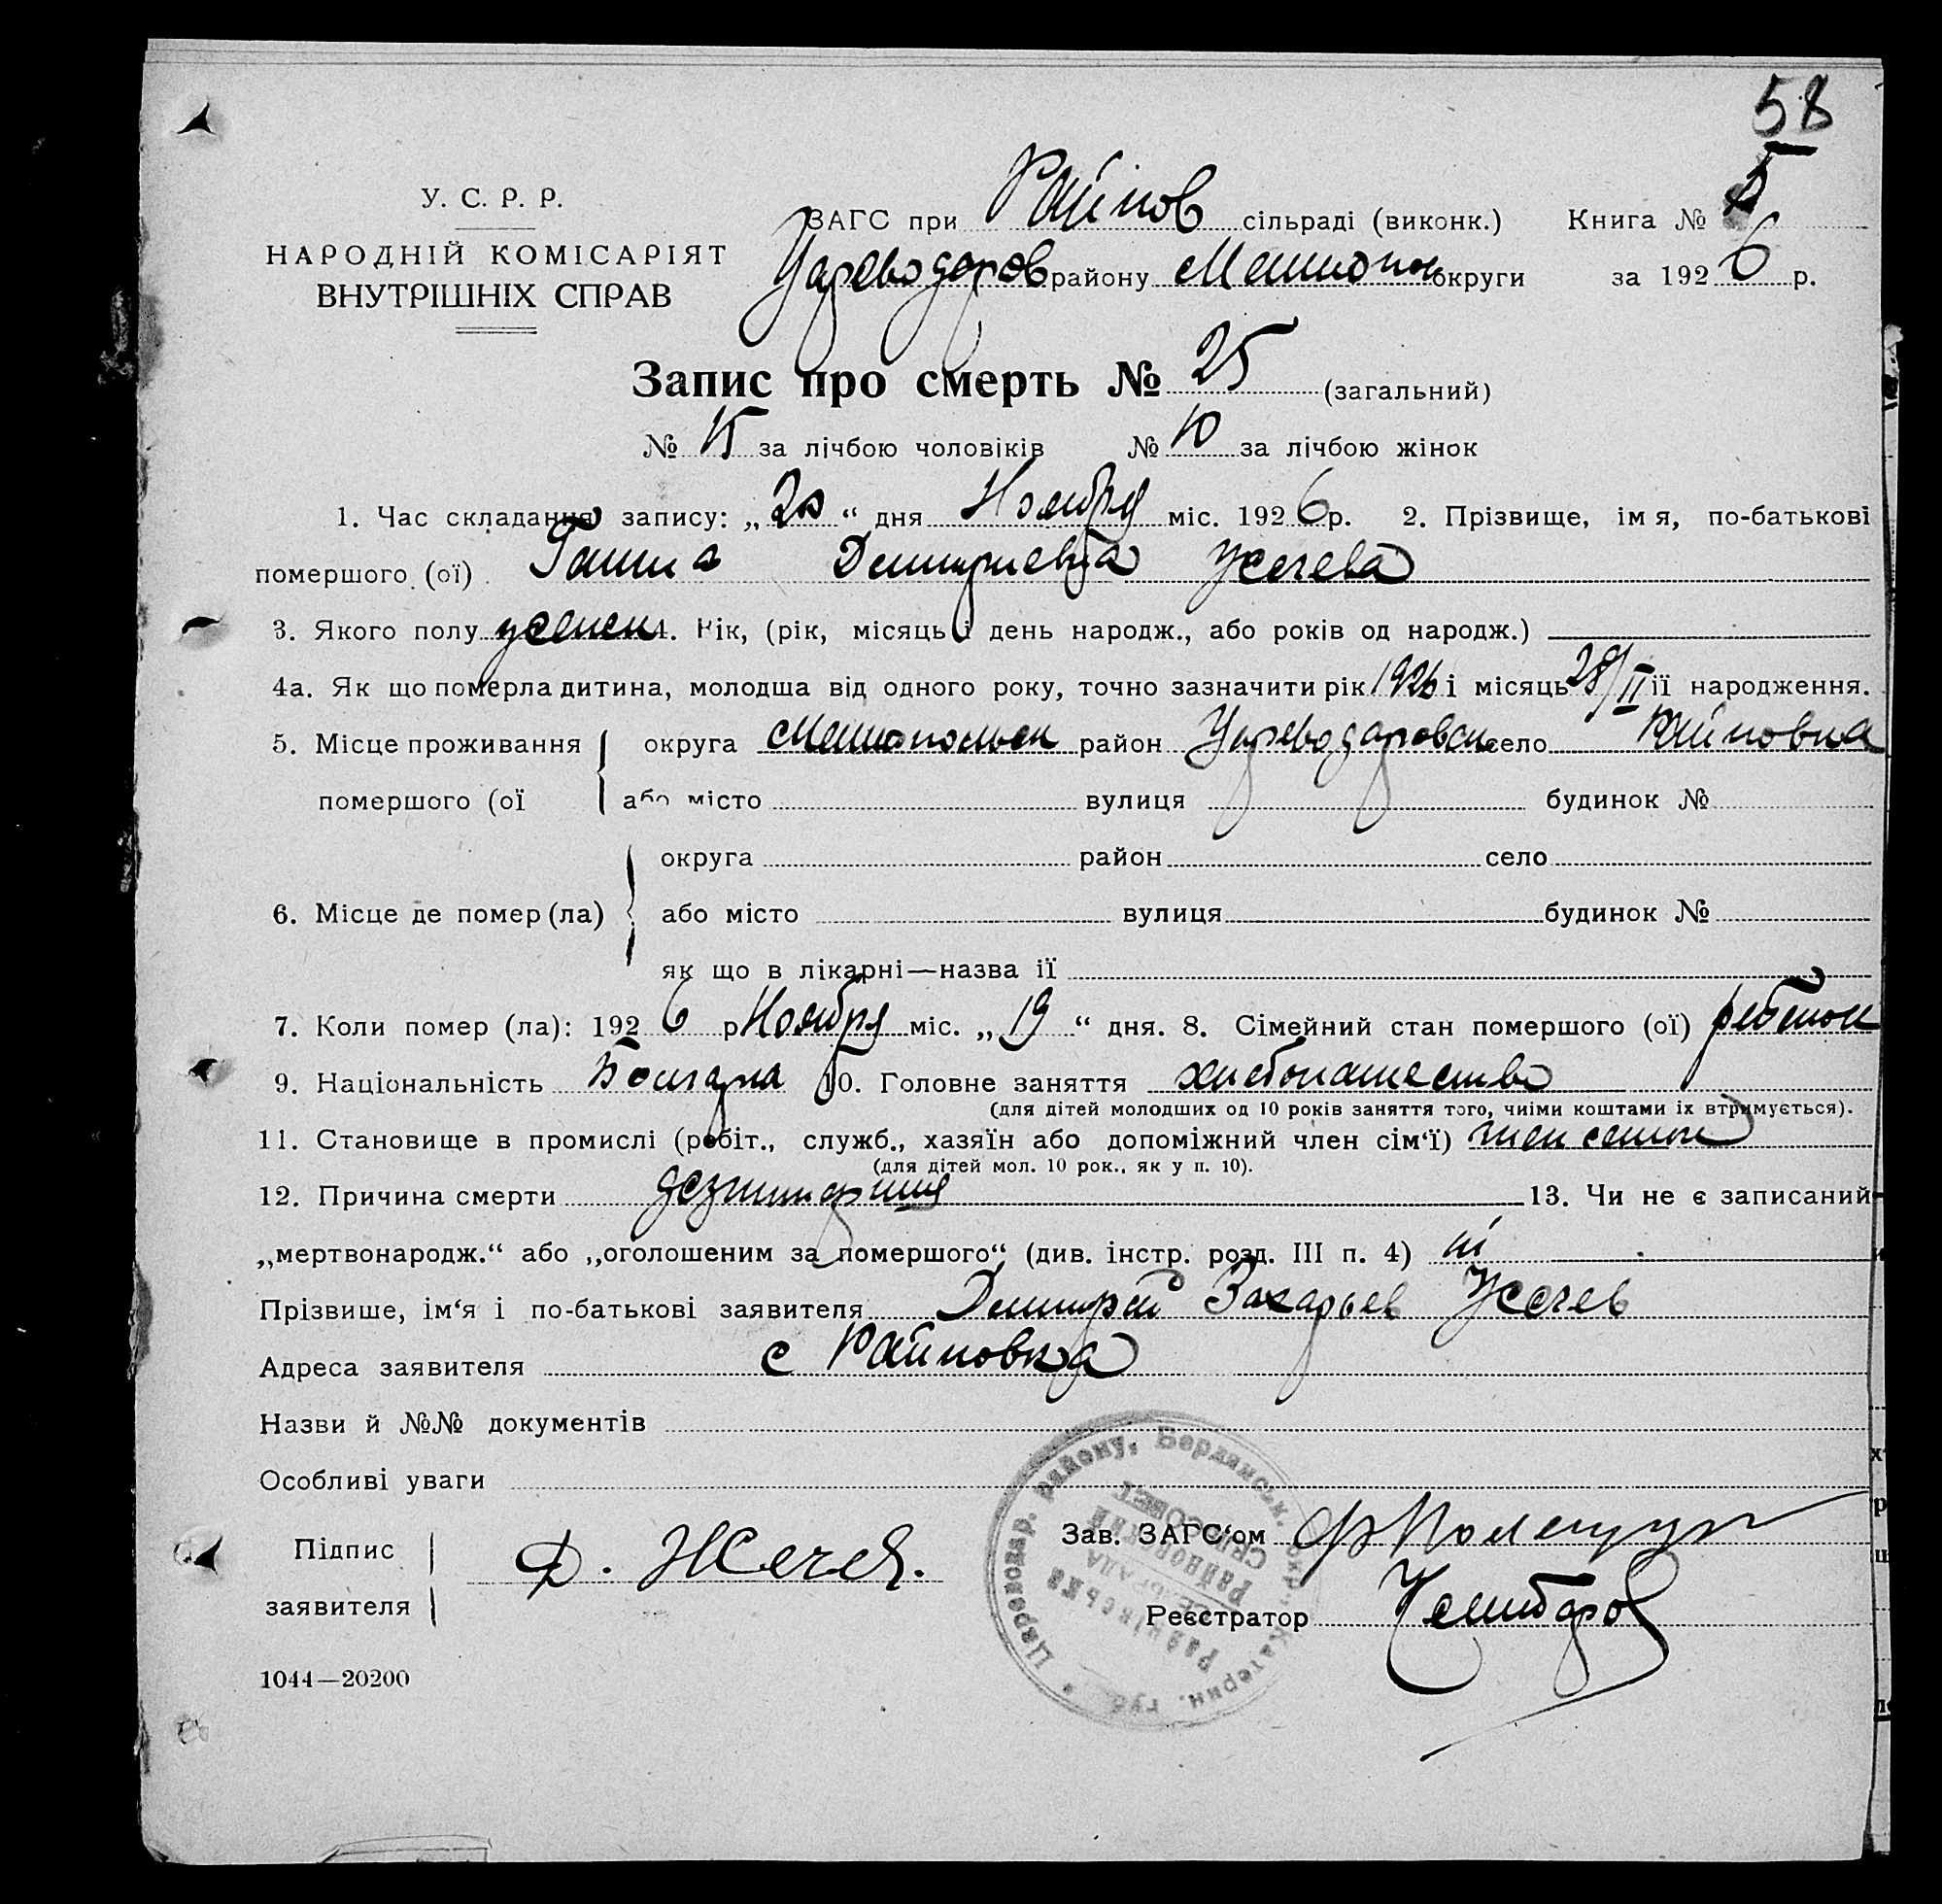 58
У. С. Р. Р.
НАРОДНІЙ КОМІСАРІЯТ
ВНУТРІШНІХ СПРАВ
ЗАГС при Райнов сільраді (виконк.) Книга №
Цареводаров району Мелитопол округи за 1926 р.
Запис про смерть № 25 (загальний)
№ 15 за лічбою чоловіків № 10 за лічбою жінок
1. Час складання запису: „20“ дня Ноября міс. 1926 р. 2. Прізвище, імя, по-батькові
помершого (ої) Ганна Дмитриевна Жечева
3. Якого полу женск 4. Рік, (рік, місяць і день народж., або років од народж.)
4а. Як що померла дитина, молодша від одного року, точно зазначити рік 1926 і місяць 28/II її народження.
5. Місце проживання округа Мелитопольск район Цареводаровск село Райновка
помершого (ої або місто вулиця будинок №
округа район село
6. Місце де помер(ла) або місто вулиця будинок №
як що в лікарні—назва її
7. Коли помер (ла): 1926 р Ноября міс. „19“ дня. 8. Сімейний стан помершого (ої) ребенок
9. Національність Болгарка 10. Головне заняття хлебопашество
(для дітей молодших од 10 років заняття того, чиіми коштами іх втримується).
11. Становище в промислі (робіт., служб., хазяїн або допоміжний член сім‘ї) член семьи
(для дітей мол. 10 рок., як у п. 10).
12. Причина смерти дезинтерия 13. Чи не є записаний
„мертвонародж.“ або „оголошеним за помершого“ (див. інстр. розд. III п. 4) ні
Прізвише, ім‘я і по-батькові заявителя Дмитрий Захарьев Жечев
Адреса заявителя с Райновка
Назви й №№ документів
Особливі уваги
Підпис
заявителя Д. Жечев.
Зав. ЗАГС‘ом
Реєстратор
Царевовдар. району, Бердянськ. окр. Катерин. губ.
Райнівська
СЕЛЬРАДА
РАЙНОВСКИЙ
СЕЛЬСОВЕТ
1044—20200